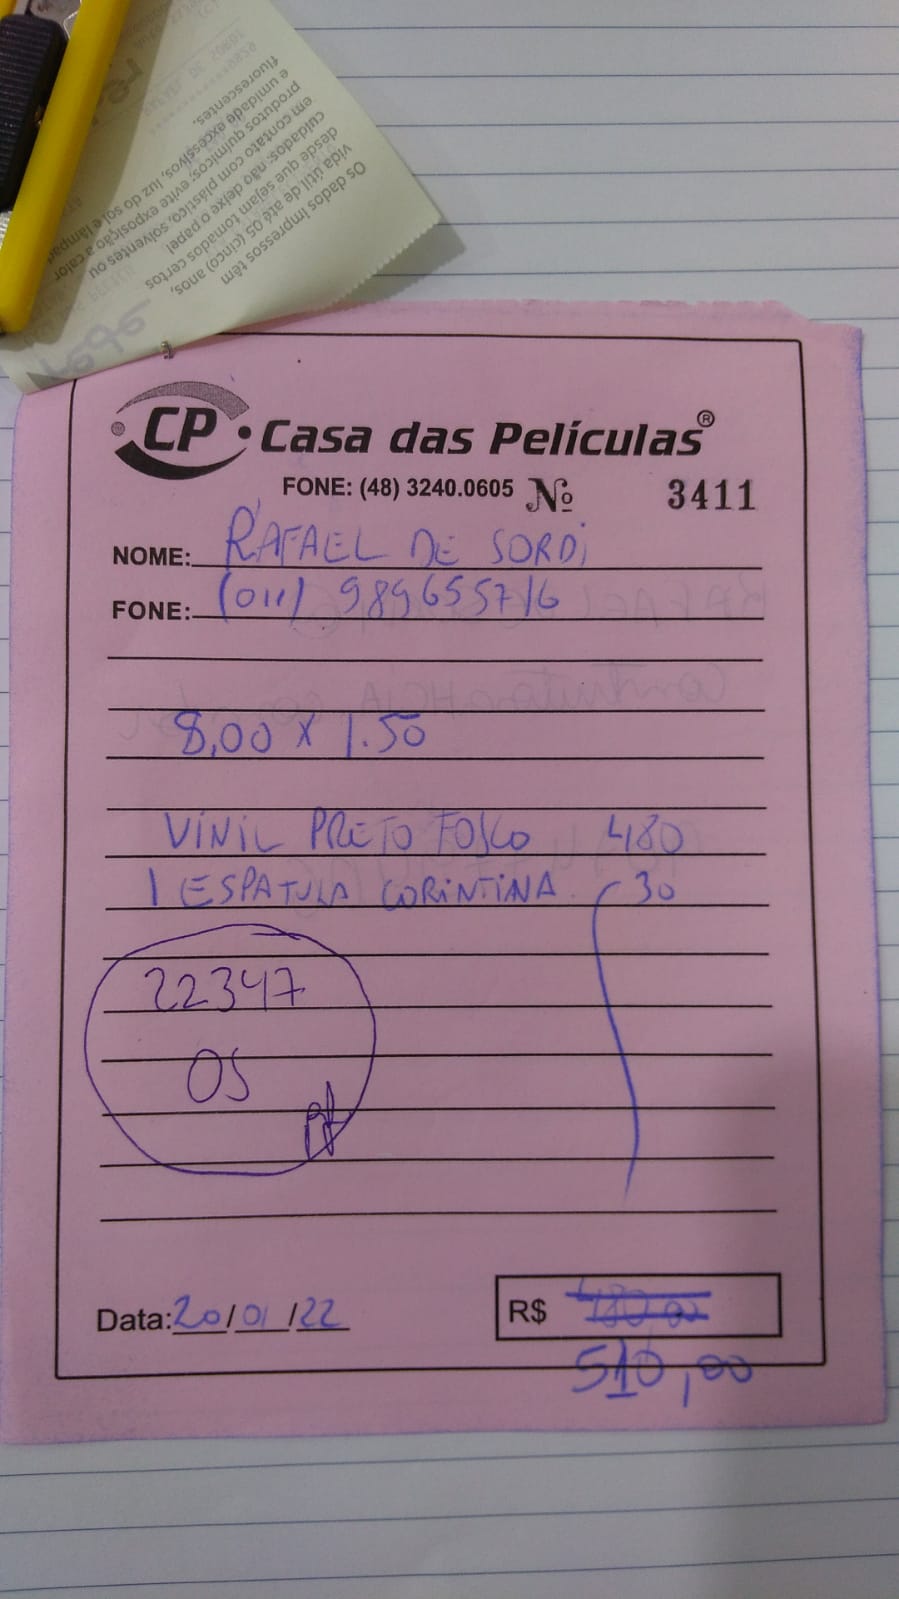 Os dados impressos têm
vida útil de até 05 (cinco) anos,
desde que sejam tomados certos
cuidados: não deixe o papel
em contato com plástico, solventes ou
produtos químicos; evite exposição a calor
e umidade excessivos, luz do sol e lâmpad
fluorescentes.
CP Casa das Películas®
FONE: (48) 3240.0605 Nº 3411
NOME: RAFAEL DE SORDI
FONE: (011) 989655716
8,00 x 1.50
VINIL PRETO FOSCO 480
1 ESPATULA CORINTINA 30
22347
OS
Data: 20/01/22
R$ 480,00
510,00